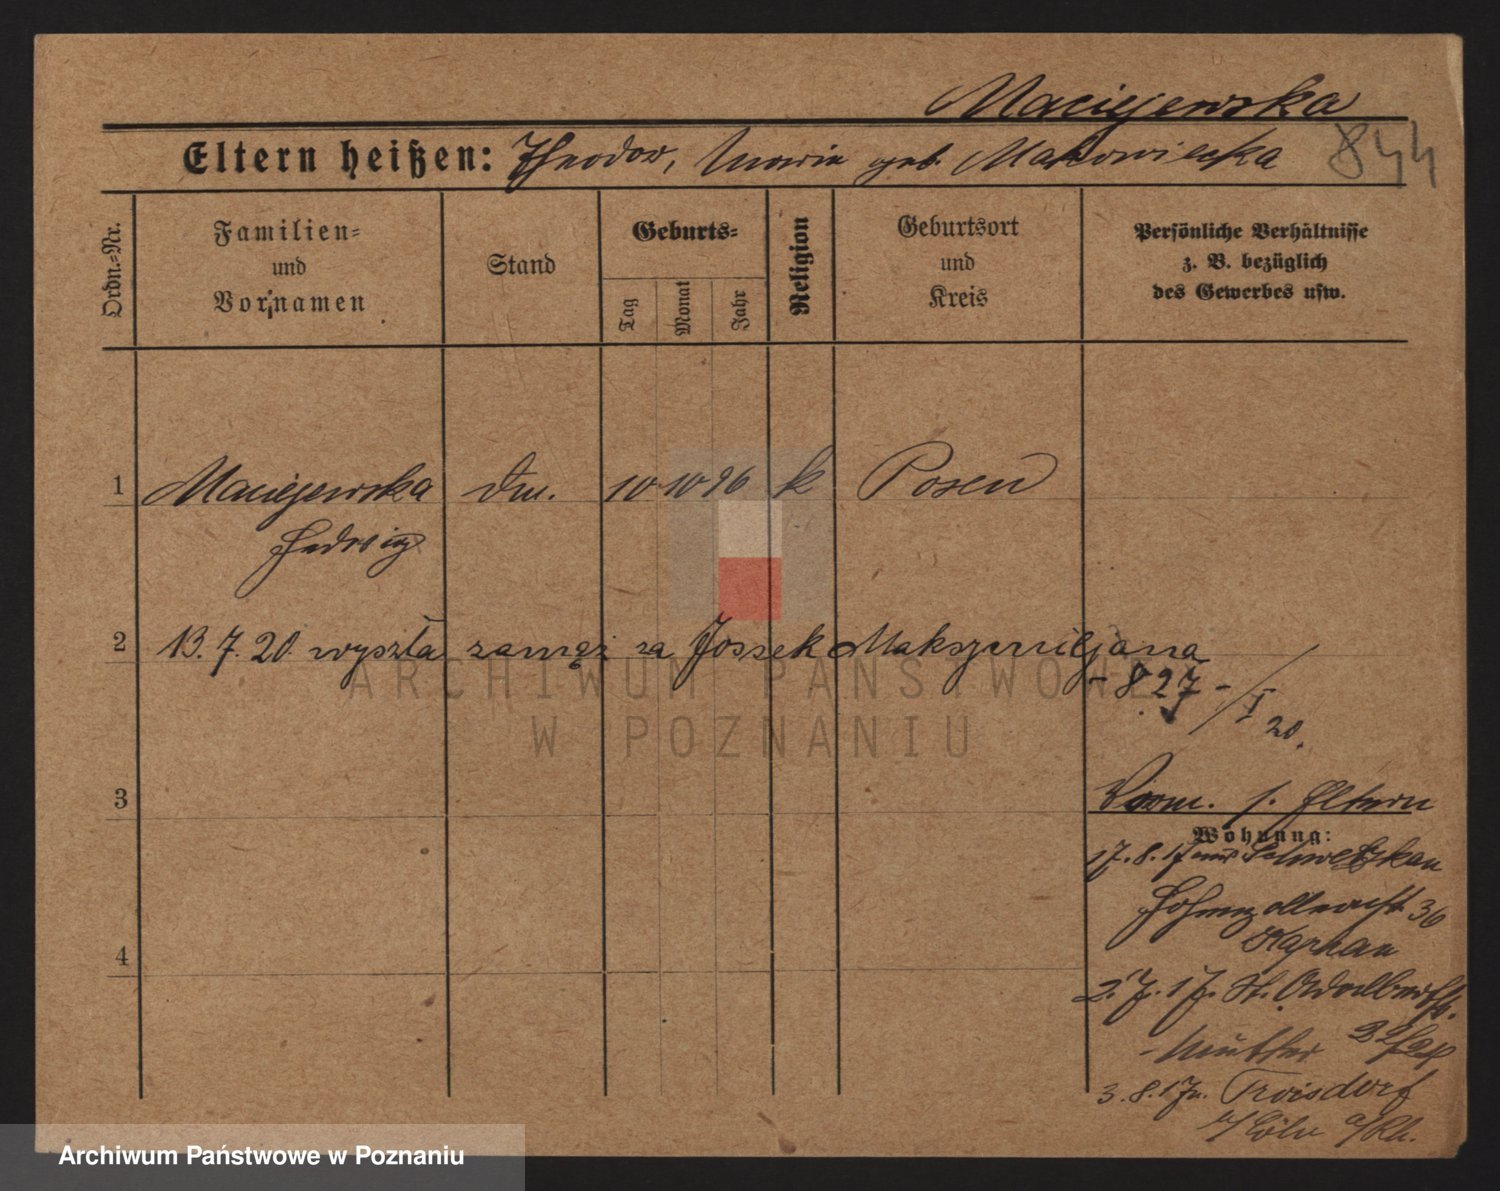 Maciejewska
844
Eltern heißen: Theodor, Maria geb. Makowiecka
Ordn.=Nr.
Familien=
und
Vornamen
Stand
Geburts=
Tag
Monat
Jahr
Religion
Geburtsort
und
Kreis
Persönliche Verhältnisse
z. B. bezüglich
des Gewerbes usw.
1 Maciejewska 10 10 96 k Posen
Hedwig
2 13.7.20 wyszła zamąż za Jossek Maksymiljana
- 827 - / I 20.
3
Vorm. s. Eltern
Wohnung:
17.8.17 aus Schwetzkau
Hohenzollernstr 36
2.7.17. St. Adalbertstr.
4
Mutter
3.8.17 n. Troisdorf
b/Cöln a/Rh.
ARCHIWUM PAŃSTWOWE
W POZNANIU
Archiwum Państwowe w Poznaniu